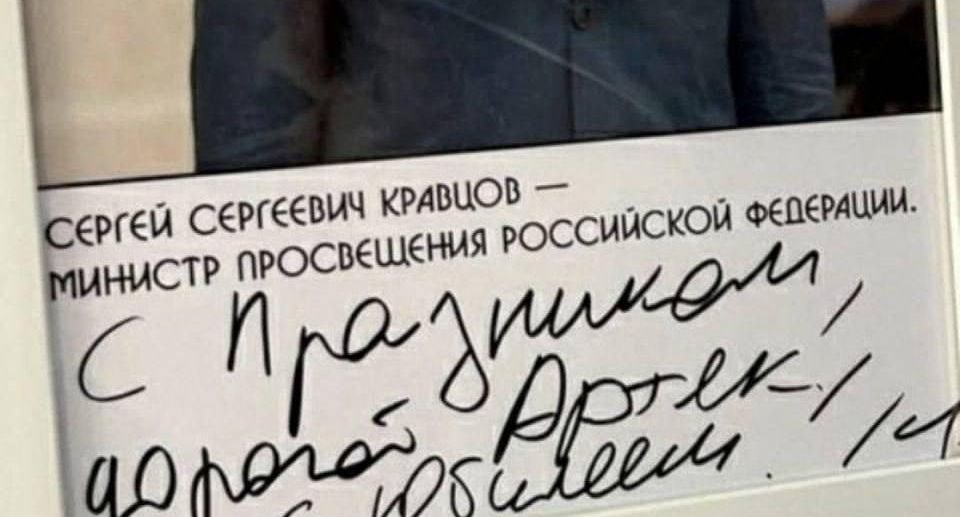 СЕРГЕЙ СЕРГЕЕВИЧ КРАВЦОВ —
МИНИСТР ПРОСВЕЩЕНИЯ РОССИЙСКОЙ ФЕДЕРАЦИИ.
С Празником,
дорогой Артек!
С Юбилеем.